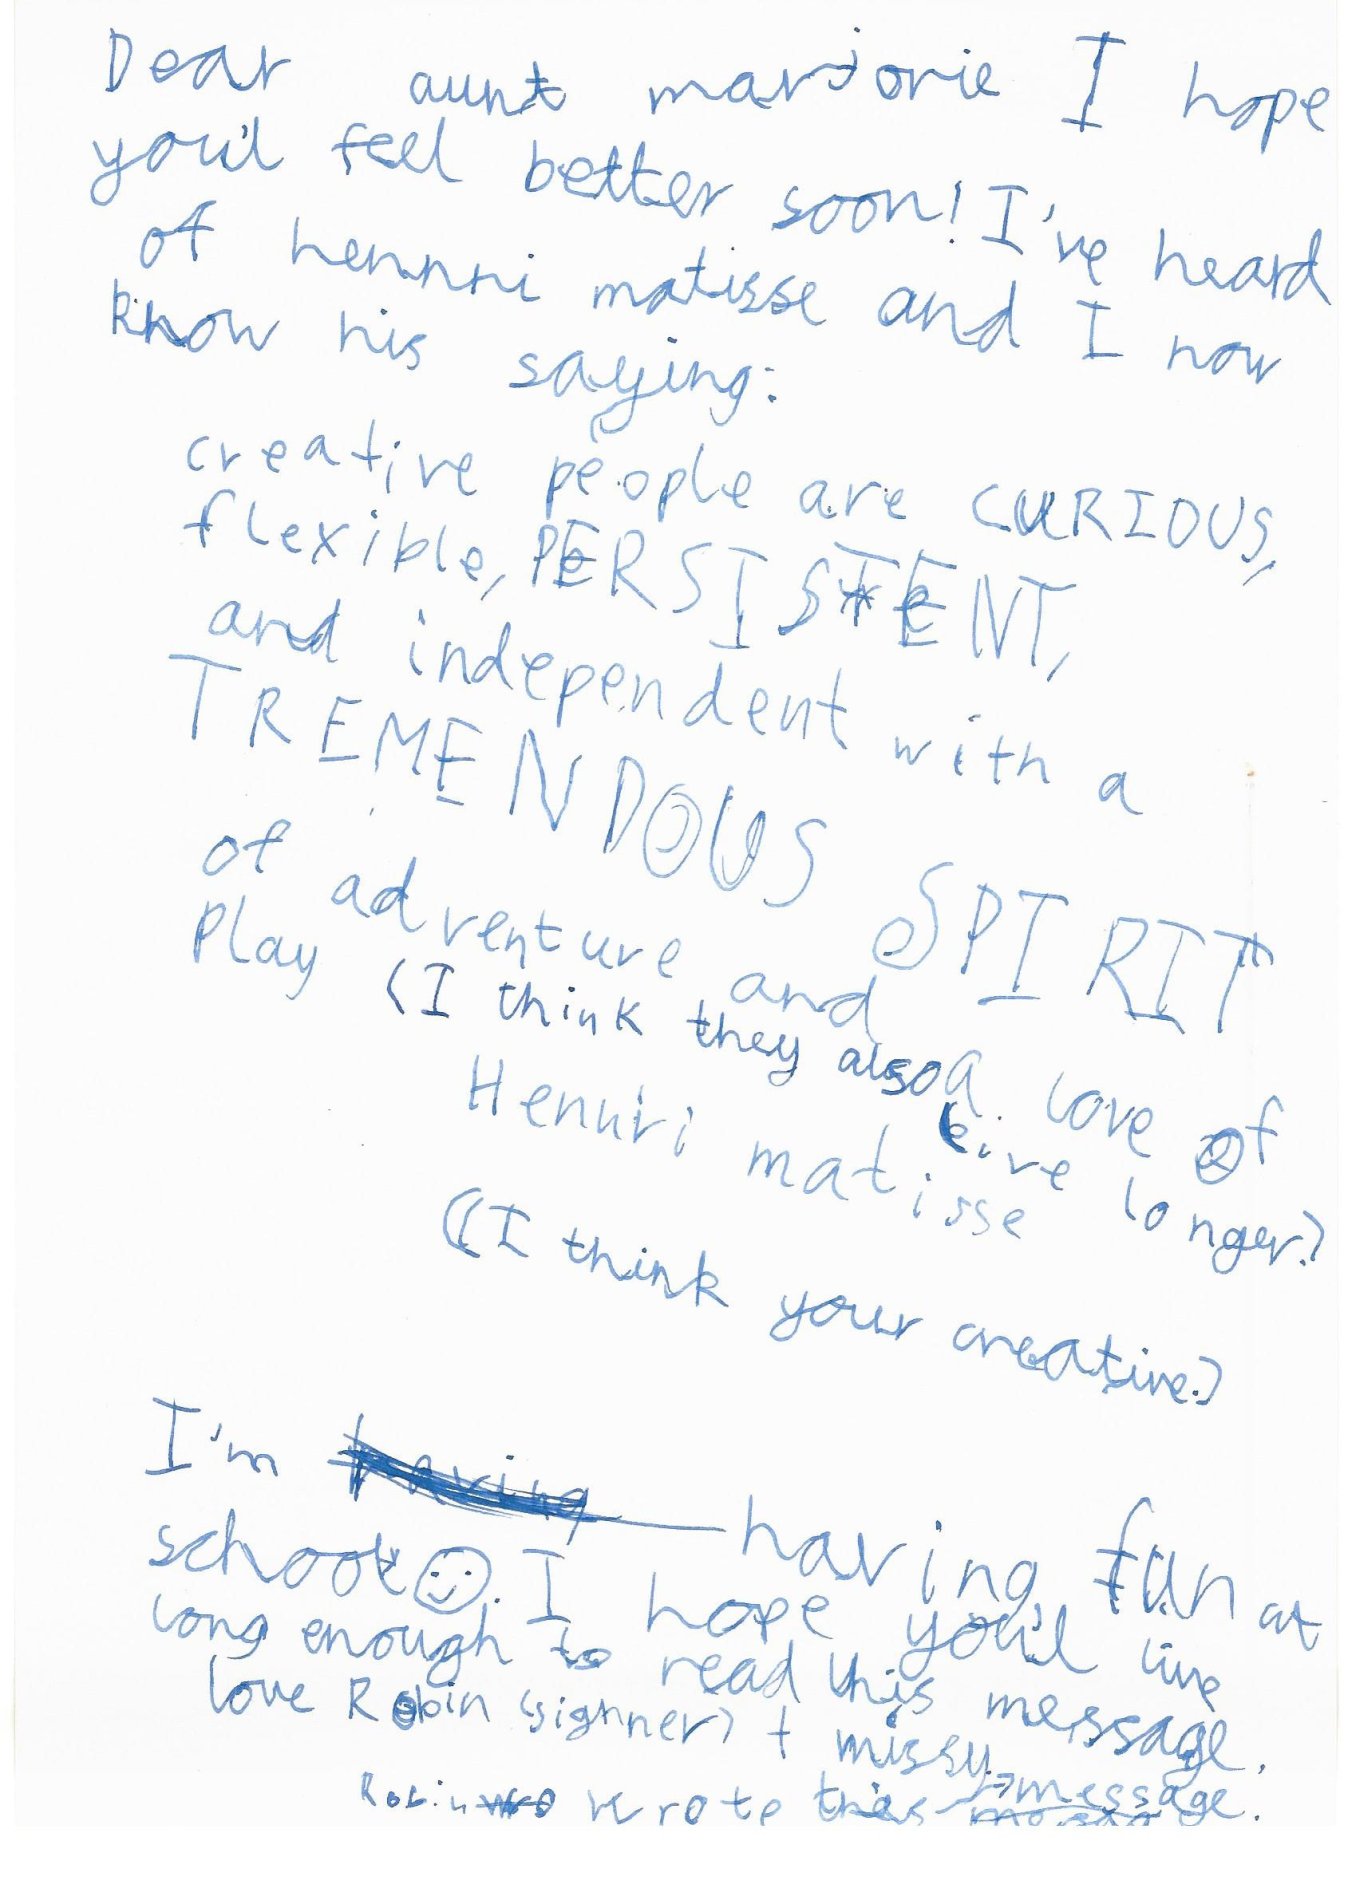 Dear aunt marjorie I hope
you'll feel better soon! I've heard
of hennri matisse and I now
know his saying:
creative people are CURIOUS,
flexible, PERSISTENT,
and independent with a
TREMENDOUS SPIRIT
of adventure and a love of
Play (I think they also live longer.)
Hennri matisse
(I think your creative.)
I'm having having fun at
school☺. I hope you'll live
long enough to read this message.
love Robin (signner) + missy
Robin wrote this message.